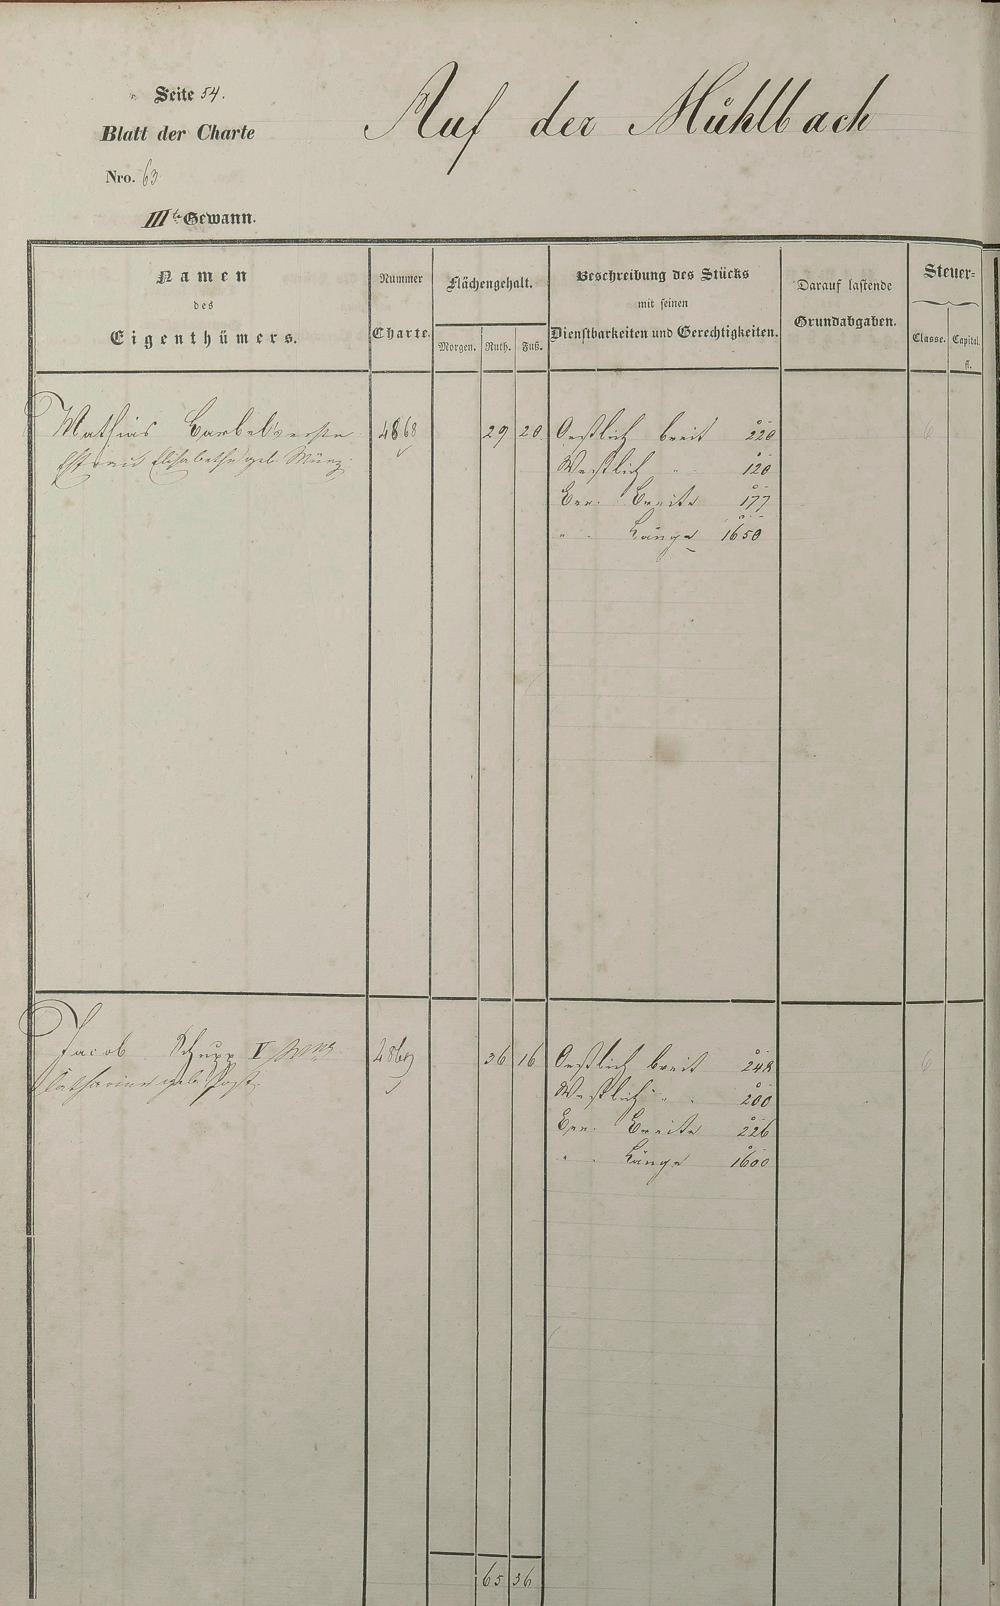 Seite 54.
Auf der Mühlbach
Blatt der Charte
Nro. 63
IIIte Gewann.
Namen
des
Eigenthümers.
Nummer
Charte.
Flächengehalt.
Morgen. Ruth. Fuß.
Beschreibung des Stücks
mit seinen
Dienstbarkeiten und Gerechtigkeiten.
Darauf lastende
Grundabgaben.
Steuer-
Classe. Capital.
fl.
Mathias 4868 29 20 Oestlich breit 220 6
Elisabetha geb. Münz
Westlich " " 120
Breite 177
" Länge 1650
Jacob Schupp V 4869 36 16 Oestlich breit 248 6
Catharina geb. Post
Westlich " " 200
Breite 226
" Länge 1600
65 36